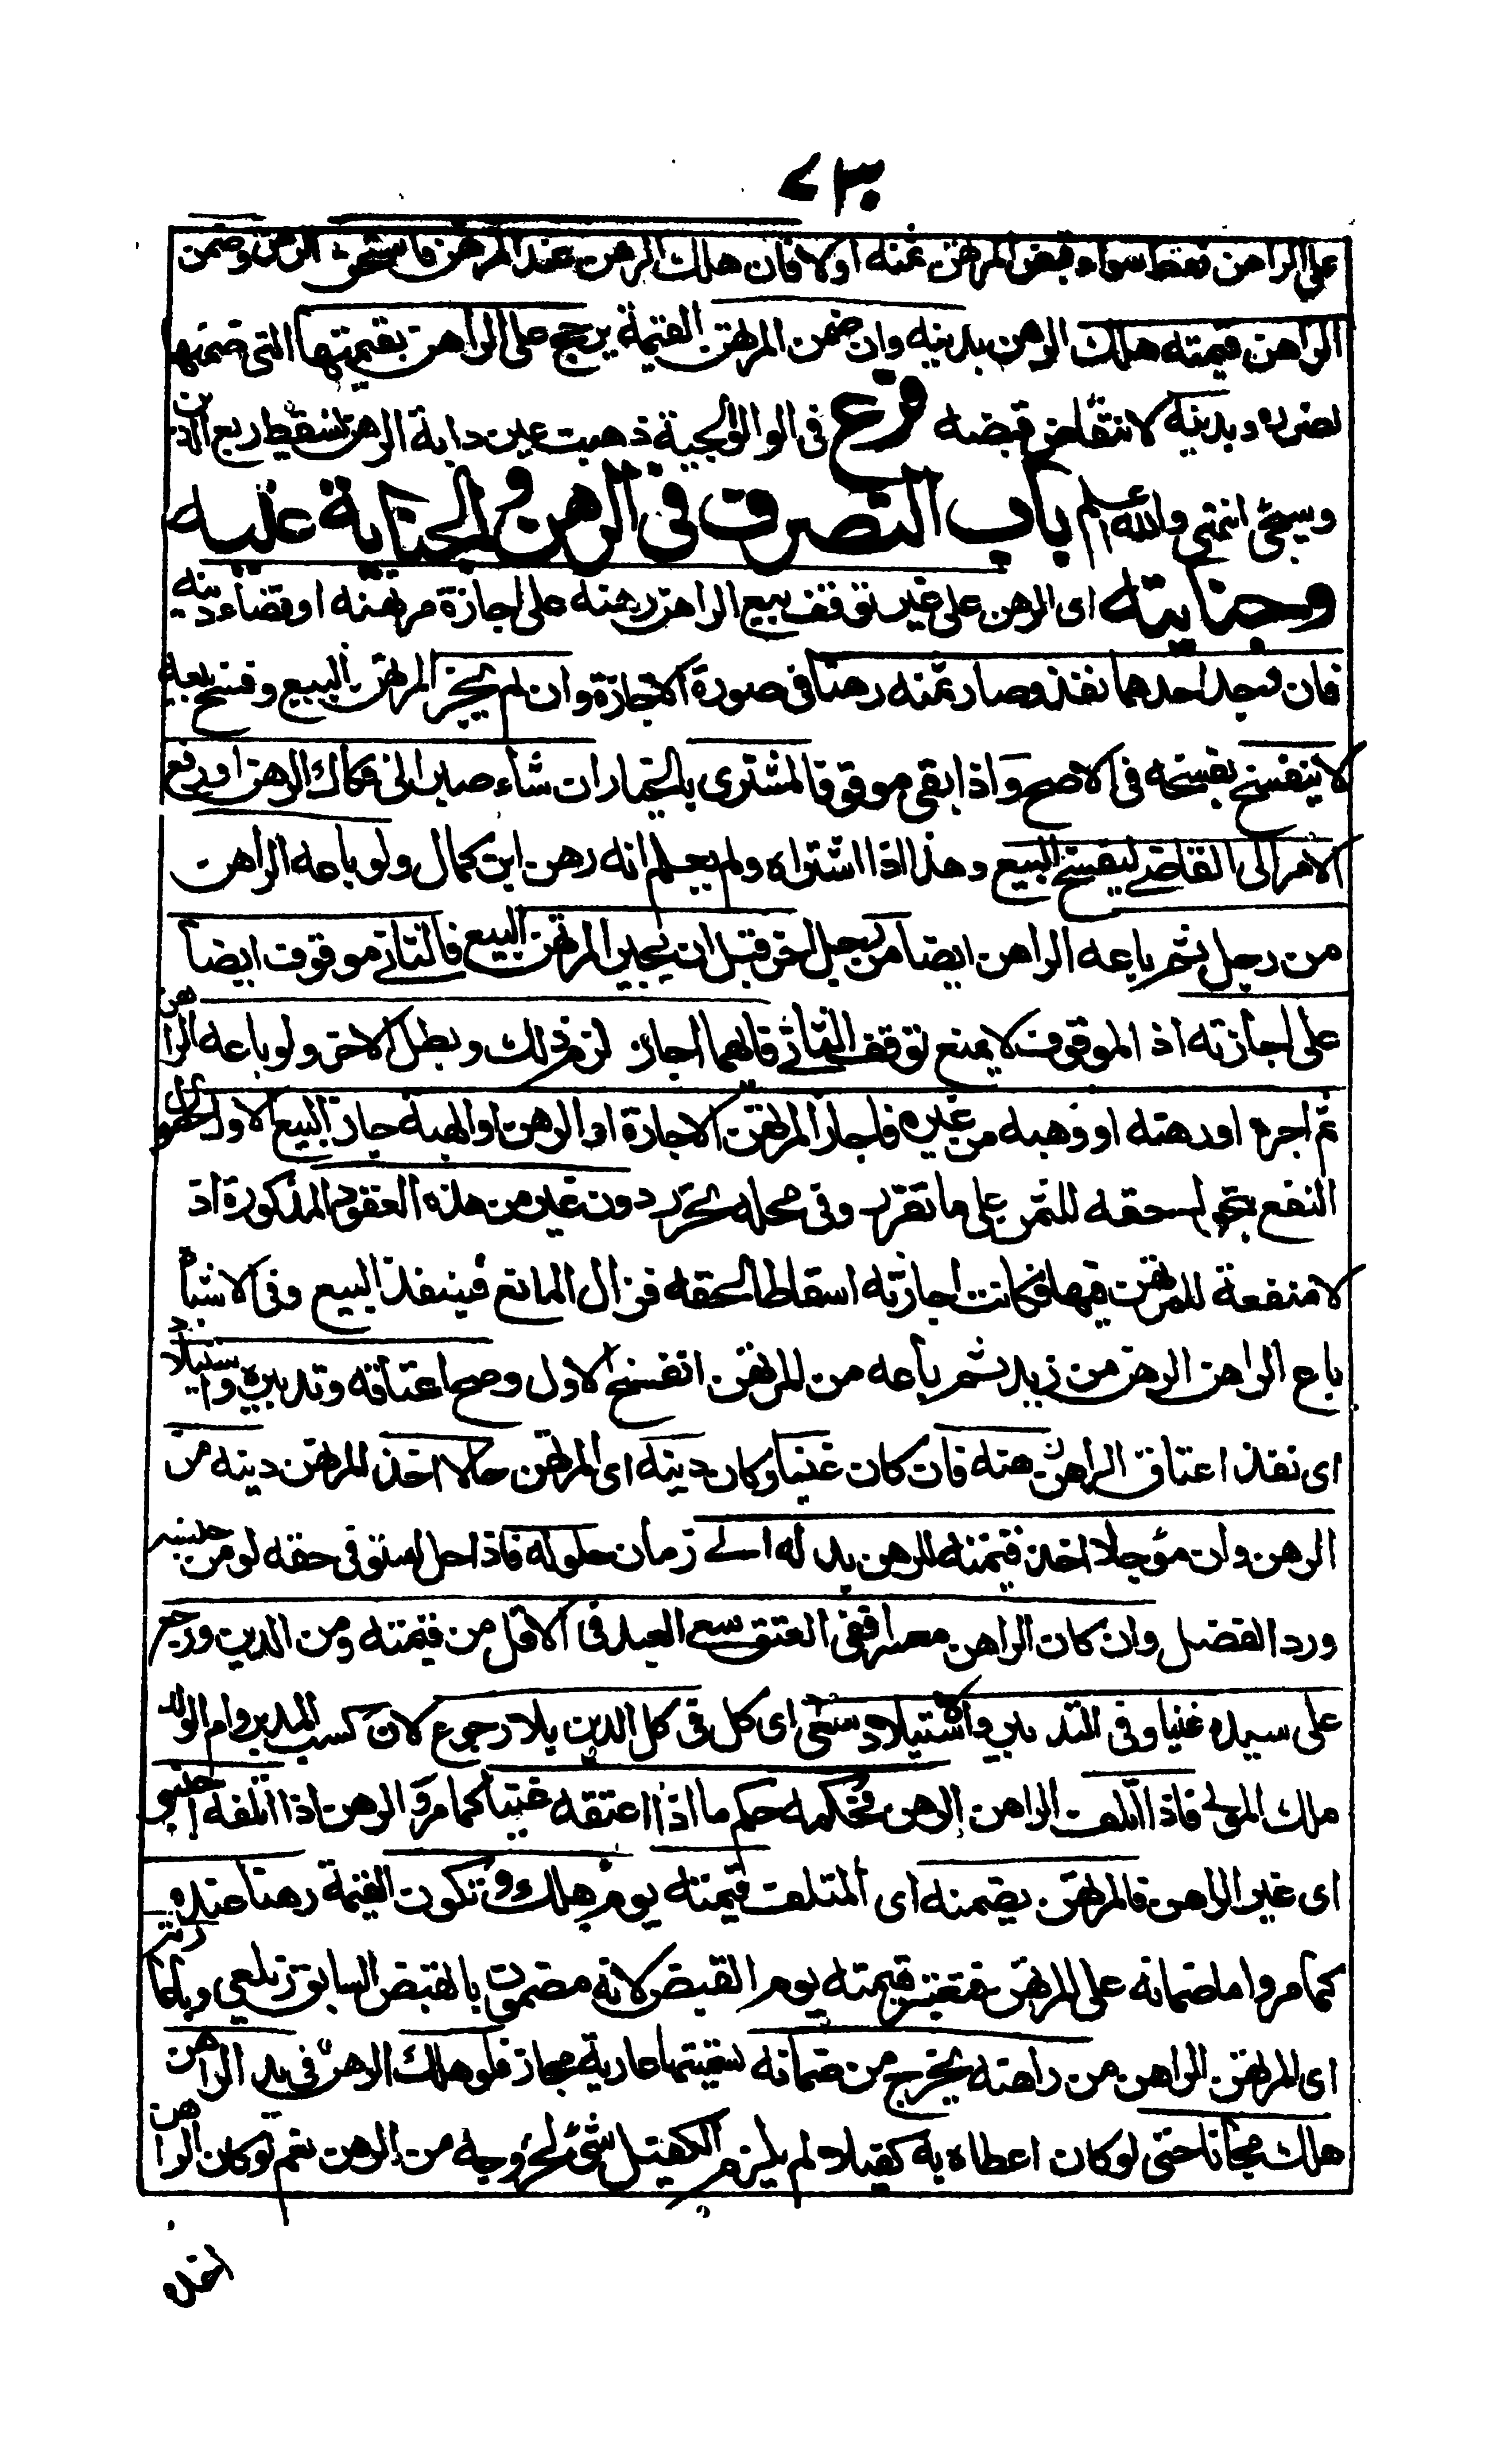 ٧٣٠
على الراهن فقط سواء قبض المرتهن ثمنه اولا فان هلك الرهن عند المرتهن فاستحق الرهن وضمن
الراهن قيمته هلك الرهن بدينه وان ضمن المرتهن القيمة يرجع على الراهن بقيمتها التى ضمنها
لضرره وبدينه لانتقاض قبضه فرع فى الولوالجية ذهبت عين دابة الرهن سقط ربع الدين
وسيجئ انتهى والله اعلم باب التصرف فى الرهن والجناية عليه
وجنايته اى الرهن على غيره توقف بيع الراهن رهنه على اجازة مرتهنه او قضاء دينه
فان وجد احدهما نفذ وصار ثمنه رهنا فى صورة الاجازة وان لم يجز المرتهن البيع وفسخ بيعه
لا ينفسخ بفسخه فى الاصح واذا بقى موقوفا لمشترى بالخيار ان شاء صبر الى فكاك الرهن او رفع
الامر الى القاضى ليفسخ البيع وهذا اذا اشتراه ولم يعلم انه رهن ابن كمال ولو باعه الراهن
من رجل ثم باعه الراهن ايضا من رجل اخر قبل ان يجيز المرتهن البيع فالثانى موقوف ايضا
على اجازته اذ الموقوف لا يمنع توقف الثانى فايهما اجاز لزم ذلك وبطل الاخر ولو باعه الراهن
ثم اجره او رهنه او وهبه من غيره فاجاز المرتهن الاجازة او الرهن او الهبة جاز البيع الاول لحصول
النفع بتحول حقه للثمن على ما تقرر وفى محله تحرر دون غيره من هذه العقود المذكورة اذ
لا منفعة للمرتهن فيها فكانت اجازته اسقاطا لحقه فزال المانع فينفذ البيع وفى الاشباه
باع الراهن الرهن من زيد ثم باعه من المرتهن انفسخ الاول وصح اعتاقه وتدبيره واستيلاد
اى نفذ اعتاق الراهن رهنه فان كان غنيا وكان دينه اى المرتهن حالا اخذ المرتهن دينه من
الرهن وان مؤجلا اخذ قيمته للرهن بدله الى زمان حلوله فاذا حل استوفى حقه لو من جنسه
ورد الفضل وان كان الراهن معسرا ففى العتق سعى العبد فى الاقل من قيمته ومن الدين ورجع
على سيده غنيا وفى التدبير والاستيلاد سعى اى كل فى كل الدين بلا رجوع لان كسب المدبر وام الولد
ملك المولى فاذا اتلف الراهن الرهن فحكمه حكم ما اذا اعتقه غنيا كما مر والرهن اذا اتلفه اجنبى
اى غير الراهن فالمرتهن يضمنه اى المتلف قيمته يوم هلك وتكون القيمة رهنا عنده
كما مر واما ضمانه على المرتهن فتعتبر قيمته يوم القبض لانه مضمون بالقبض السابق زيلعى وباعارته
اى المرتهن الراهن من راهنه يخرج من ضمانه تسميتها عارية مجاز فلو هلك الرهن فى يد الراهن
هلك مجانا حتى لو كان اعطاه به كفيلا لم يلزم الكفيل شئ لخروجه من الرهن نعم لو كان الراهن
اخذه